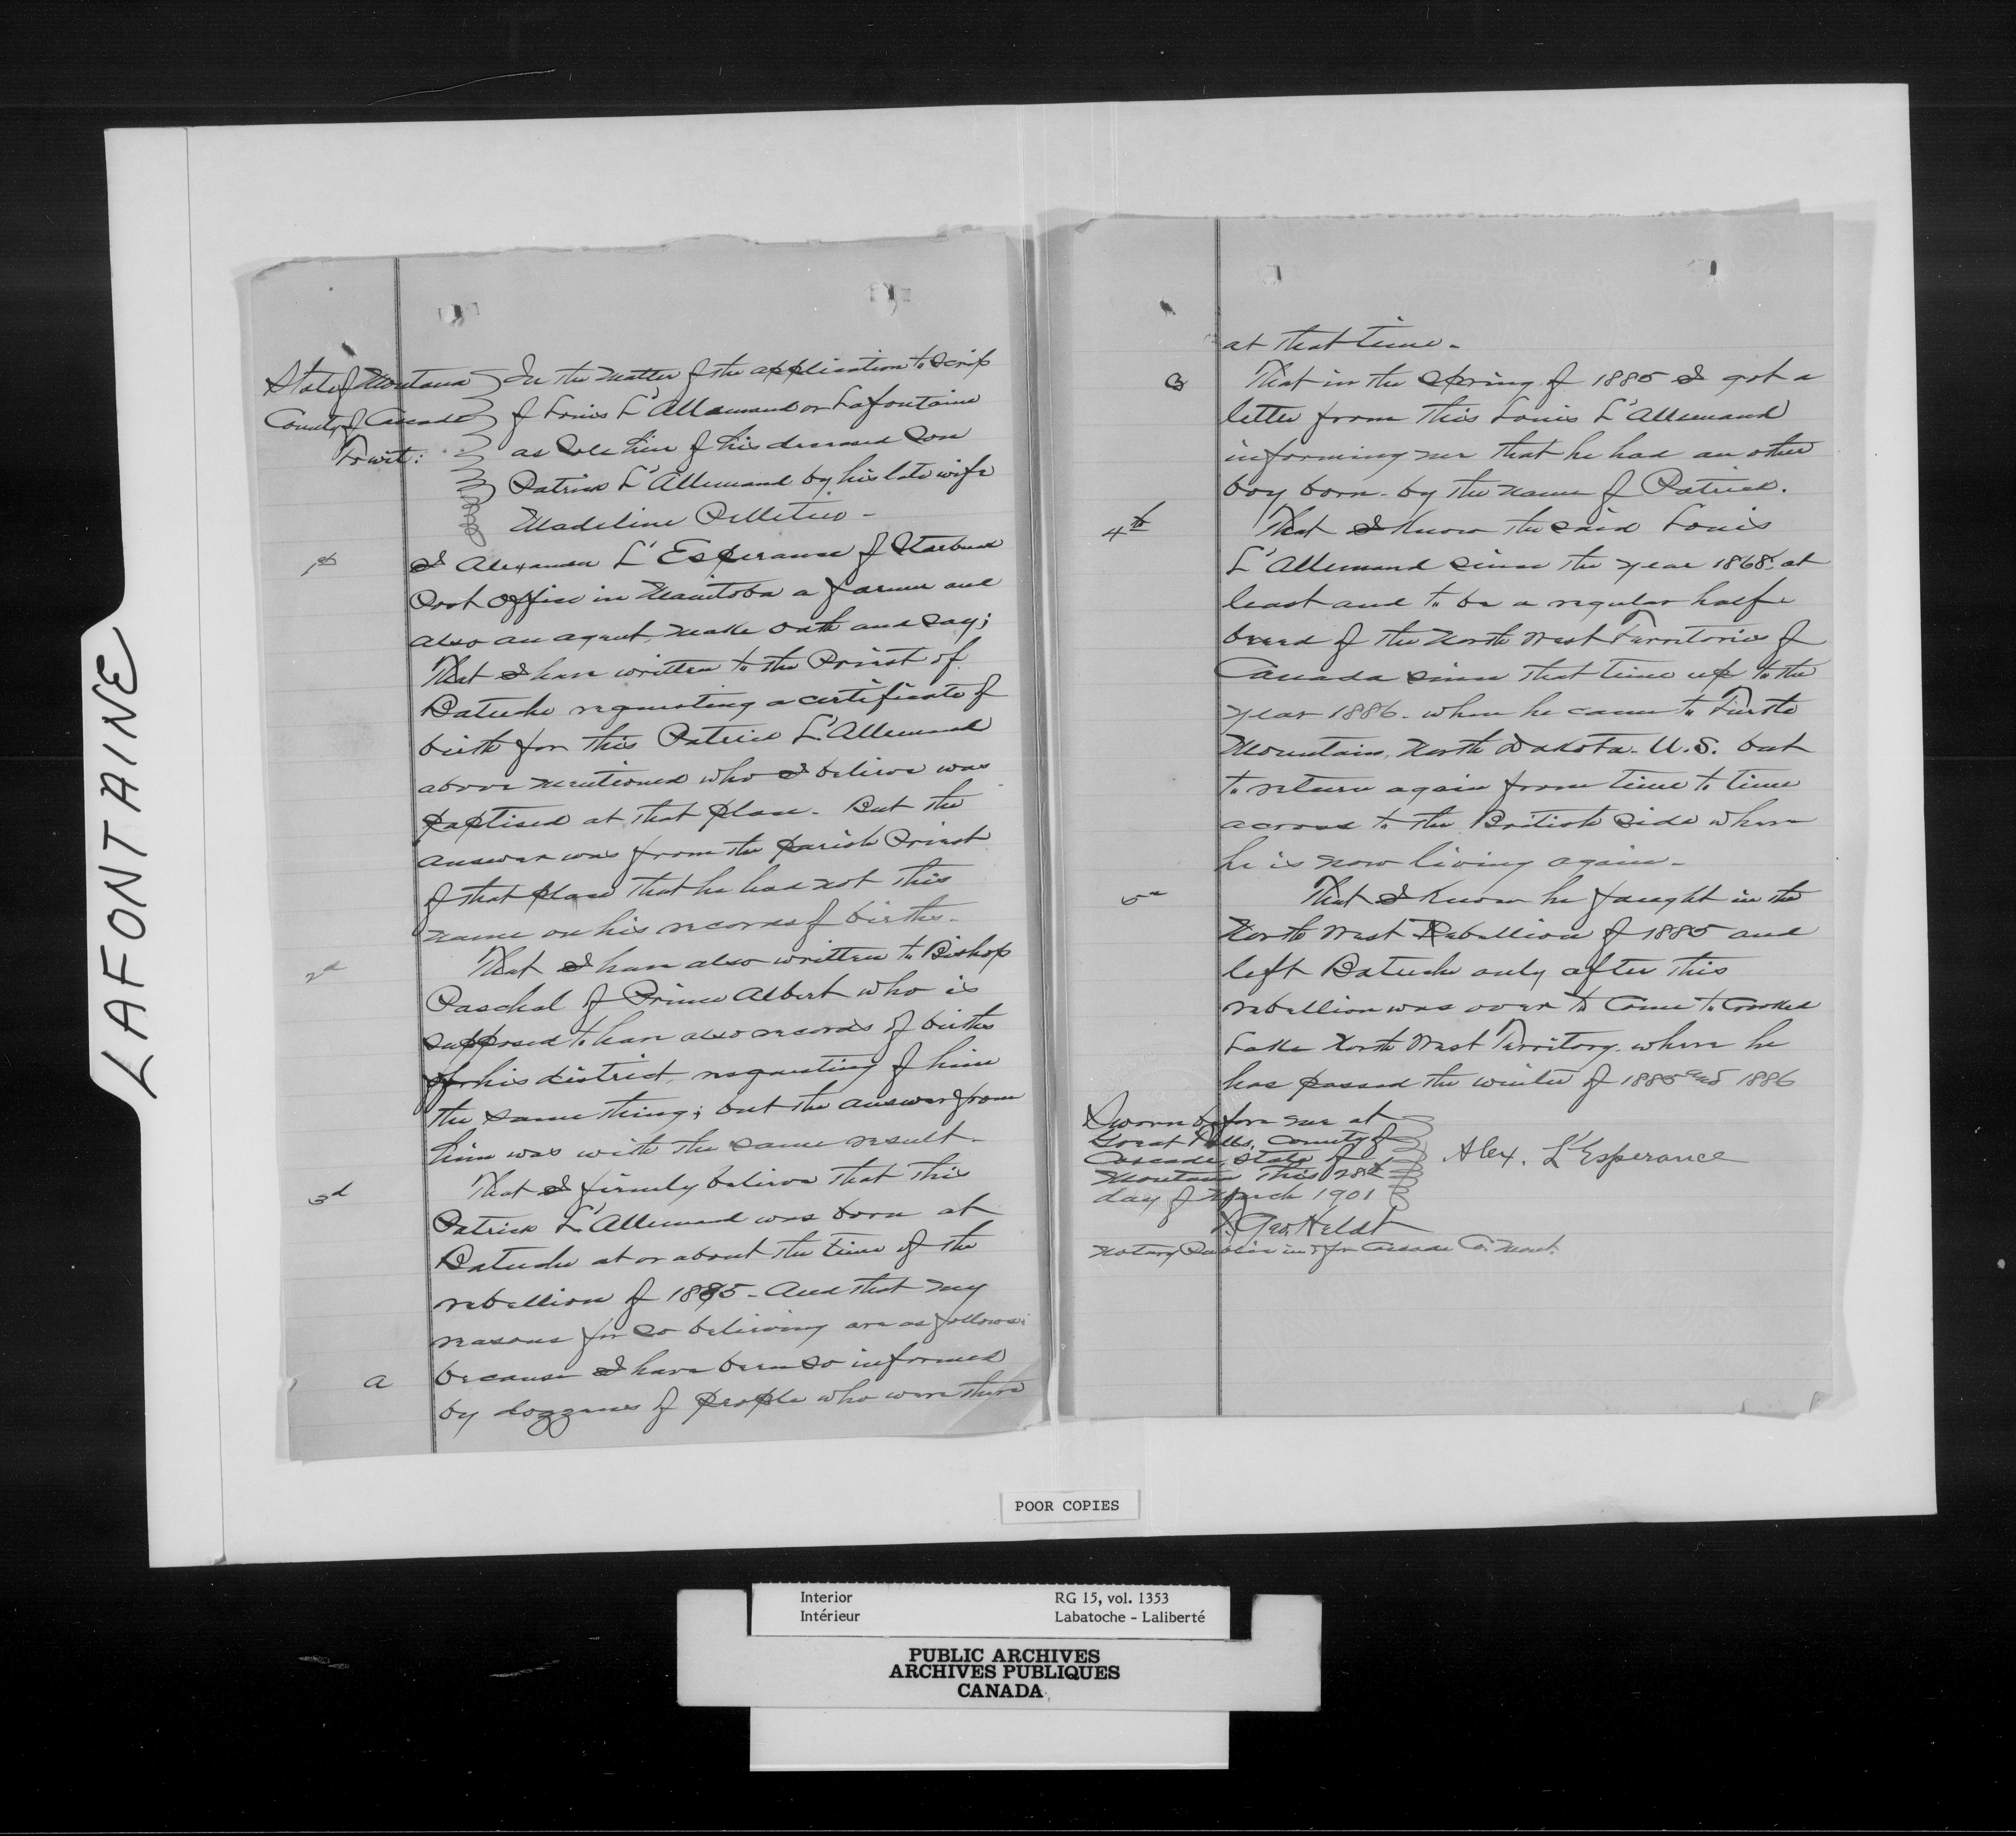 LAFONTAINE
State of Montana
County of Cascade
To wit:
In the matter of the application to Scrip
of Louis L'Allemand or Lafontaine
as Sole heir of his deceased Son
Patrick L'Allemand by his late wife
Madeline Pelletier -
1st
I Alexander L'Esperance of Starbuck
Post Office in Manitoba a farmer and
also an agent, make oath and say;
That I have written to the Priest of
Batuche requesting a certificate of
birth for this Patrick L'Allemand
above mentioned who I believe was
paptised at that place - But the
answer was from the parish Priest
of that place that he has not this
name on his records of births -
2d
That I have also written to Bishop
Paschal of Prince Albert who is
supposed to have also records of births
for his district, requesting of him
the same thing; but the answer from
him was with the same result -
3d
That I firmly believe that this
Patrick L'Allemand was born at
Batuche at or about the time of the
rebellion of 1885 - And that my
reasons for so believing are as follows:
a
because I have been so informed
by dozzens of people who were there
at that time -
B
That in the Spring of 1885 I got a
letter from this Louis L'Allemand
informing me that he had an other
boy born - by the name of Patrick.
4th
That I know the said Louis
L'Allemand since the year 1868. at
least and to be a regular half
breed of the North West Territories of
Canada since that time up to the
year 1886 - when he came to Turtle
Mountain, North Dakota - U.S. but
to return again from time to time
across to the British side where
he is now living again -
5th
That I know he faught in the
North West Rebellion of 1885 and
left Batuche only after this
rebellion was over to come to Crooked
Lake North West Territory - where he
has passed the winter of 1885 and 1886
Sworn before me at
Great Falls, County of
Cascade, State of
Montana this 28th
day of March 1901
Alex. L'Esperance
Geo. Heldt
Notary Public in & for Cascade Co. Mont.
POOR COPIES
Interior RG 15, vol. 1353
Intérieur Labatoche - Laliberté
PUBLIC ARCHIVES
ARCHIVES PUBLIQUES
CANADA